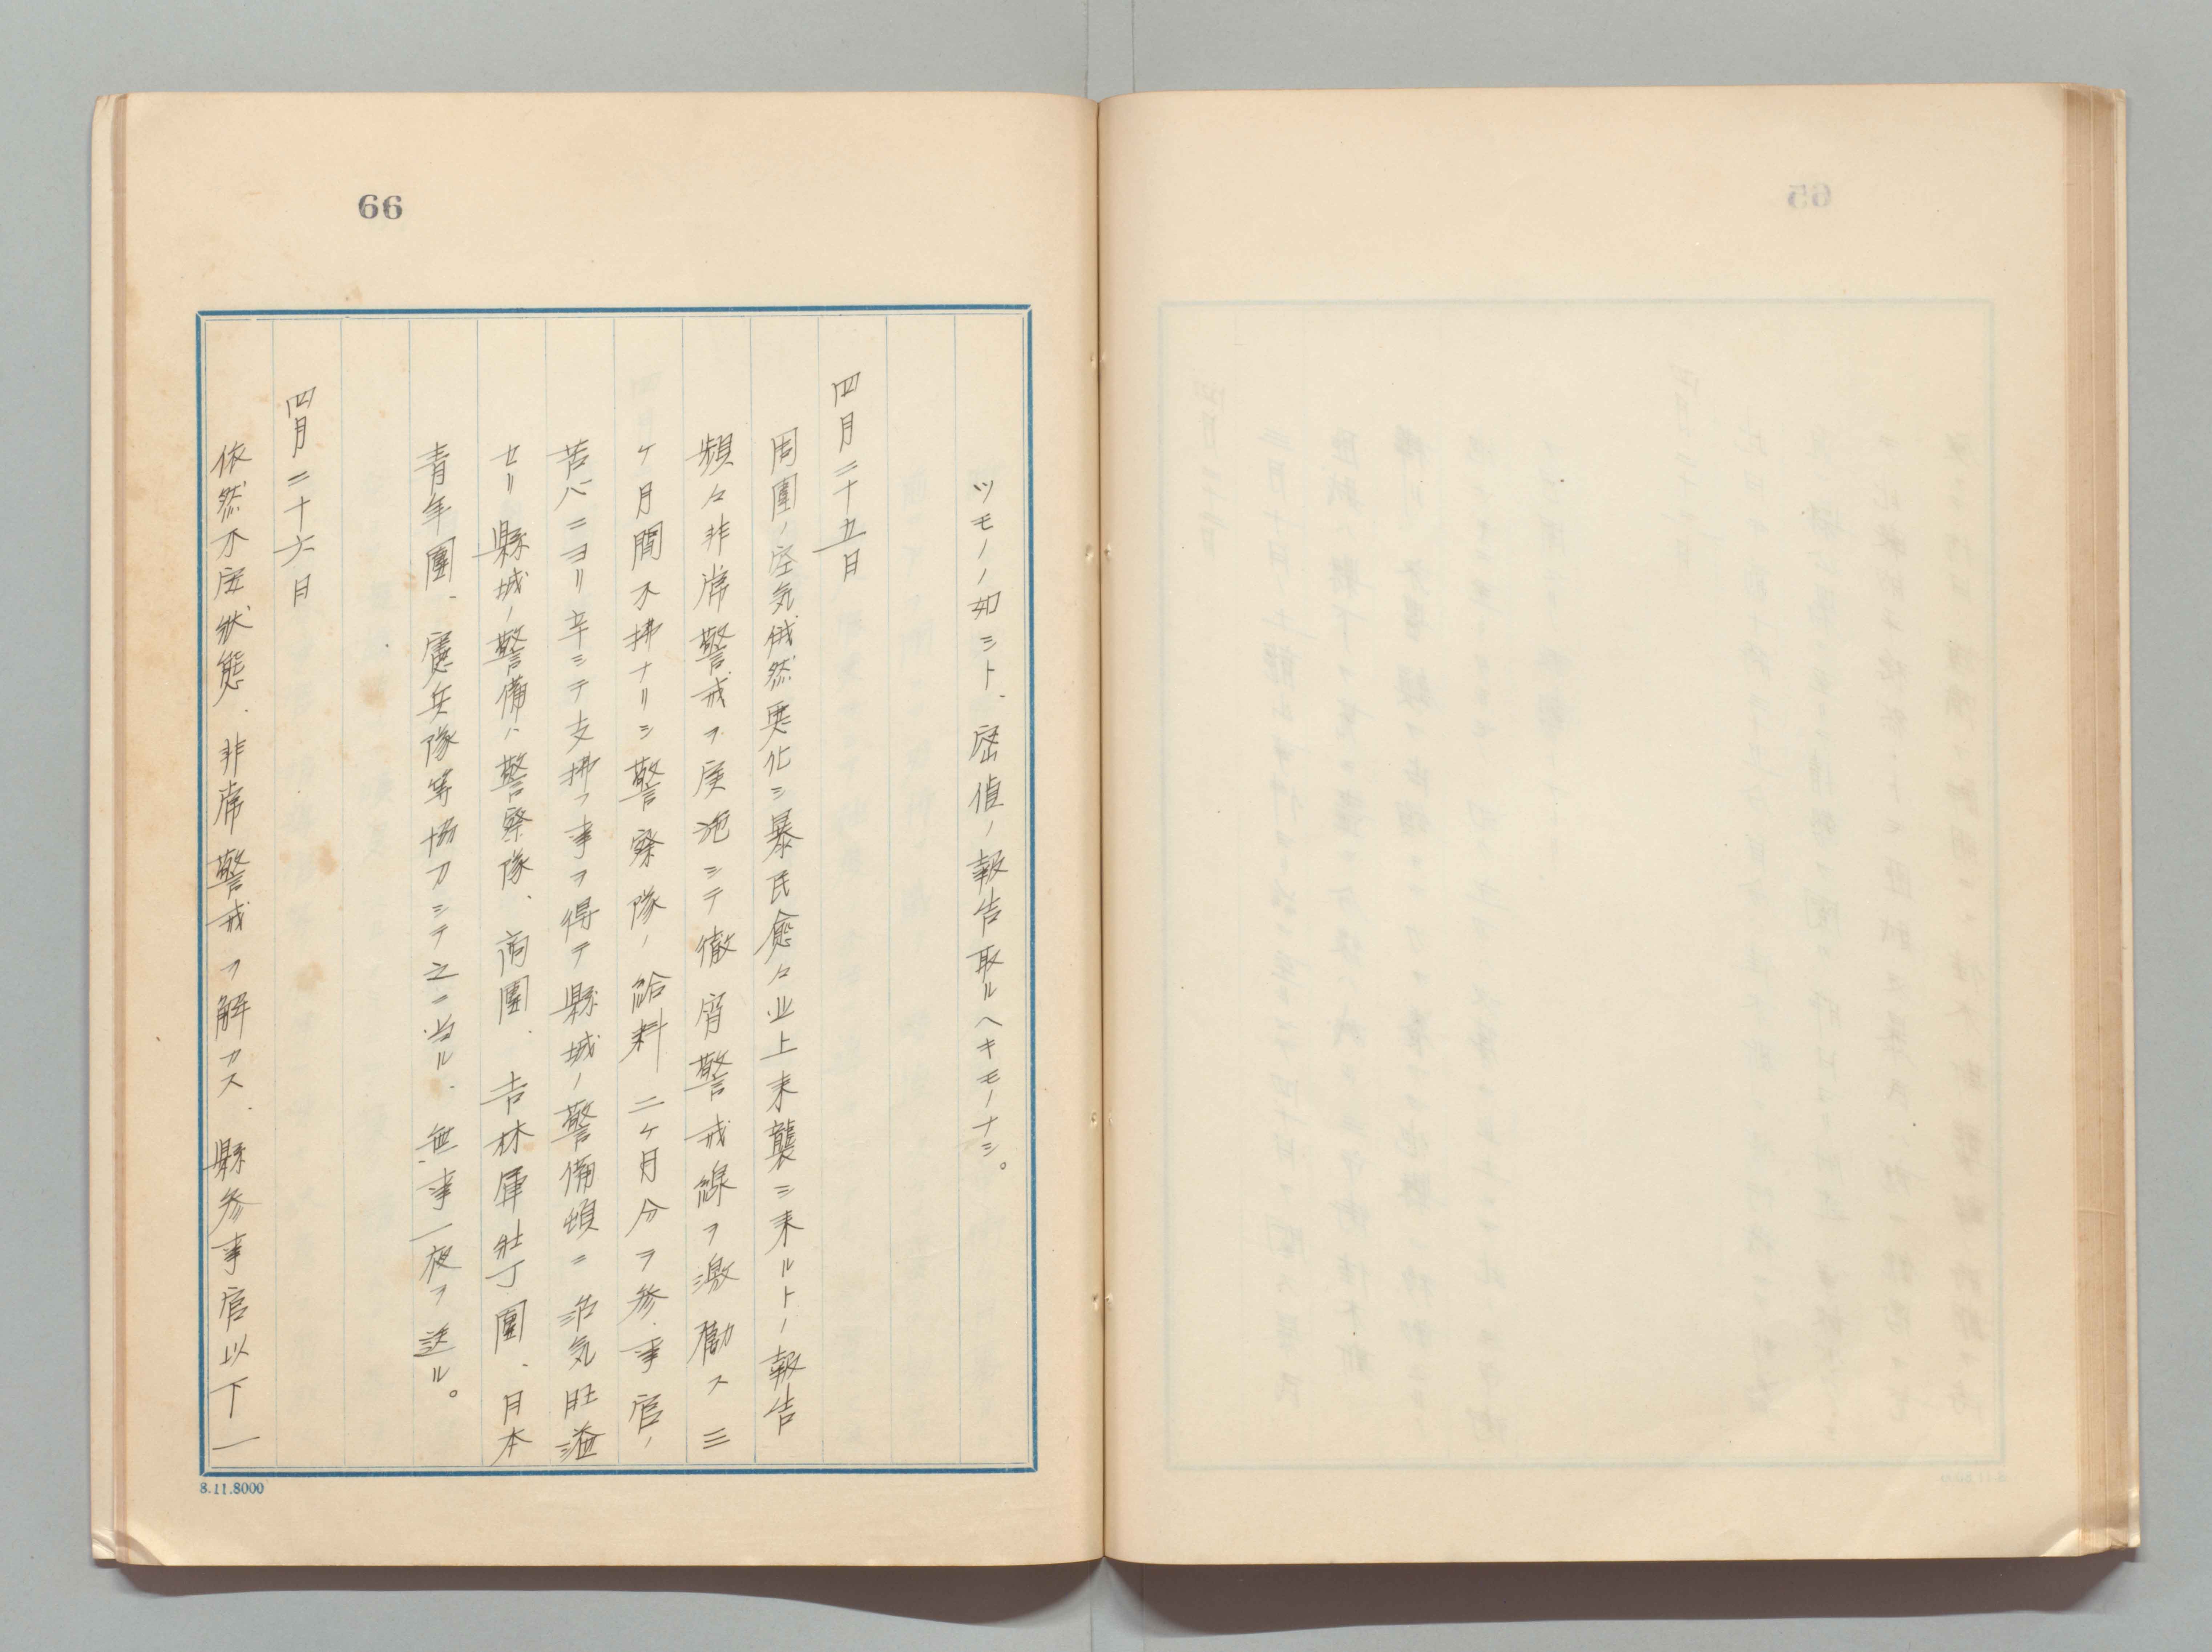 66
ツモノノ如シト、密偵ノ報告取ルヘキモノナシ。
四月二十五日
周圍ノ空気俄然悪化シ暴民愈々业上来襲シ来ルトノ報告
頻々非常警戒ヲ実施シテ徹宵警戒線ヲ激勵ス三
ケ月間不拂ナリシ警察隊ノ給料二ケ月分ヲ参事官ノ
苦心ニヨリ辛シテ支拂フ事ヲ得テ縣城ノ警備頓ニ活気旺溢
セリ縣城ノ警備ハ警察隊、商團、吉林軍壮丁團、日本
青年團、憲兵隊等協力シテ之ニ当ル、無事一夜ヲ送ル。
四月二十六日
依然不安状態、非常警戒ヲ解カス、縣参事官以下一
8.11.8000